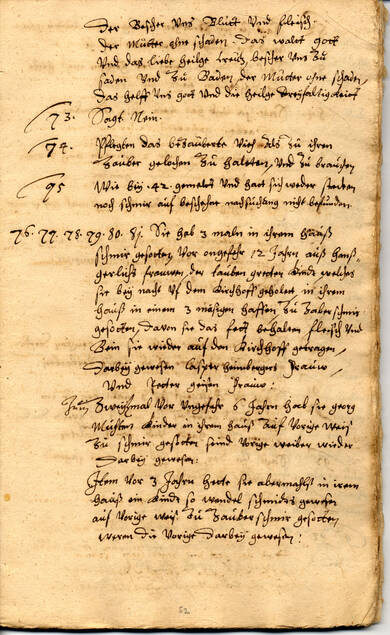 der Bescher Uns Blutt Und fleisch.
der Mutter ohne schaden. das walt gott
Und das liebe heilge Creutz, bescher Uns zu
faden Und zu Baden der Mutter ohne schaden,
das helff Uns gott Und die heilge Dreyfaltigkeit
73. Sagt Nein.
74. Pflegten das bezauberte Vieh als zu ihren
Zauber zu halten, Und zu brauchen
75 Wie bey .42. gemelt Und hatt sich weder stecken
noch schmir auf beschehne nachsuchung nicht befunden
76. 77. 78. 79. 80. 81. Sie hab 3 maln in ihrem hauß
schmir gesotten, Vor ongefehr 12 Jahrn auß hanß
frauwen der tauben grethen Kindt welches
sie bey nacht Uf dem Kirchhoff geholet in ihrem
hauß in einem 3 mesigen haffen Zu Zaber schmir
gesotten, davon sie das fett behalten fleisch Und
Bein sie wieder auf den Kirchhoff getragen,
darbey gewesen Casper heinbergers frauw,
Und Peter frauw:
Item Zweymal Vor Ungefehr 6 Jahrn hab sie georg
Kinder in ihrem hauß auf Vorige weiß
Zu schmir gesotten seind Vorige weiber wieder
darbey gewesen:
Item Vor 3 Jahrn hette sie abermahlß in irem
hauß ein Kindt so wendel schmidts gewesen
auf Vorige weiß Zu Zauber schmir gesotten
weren die Vorige darbey gewesen:
52